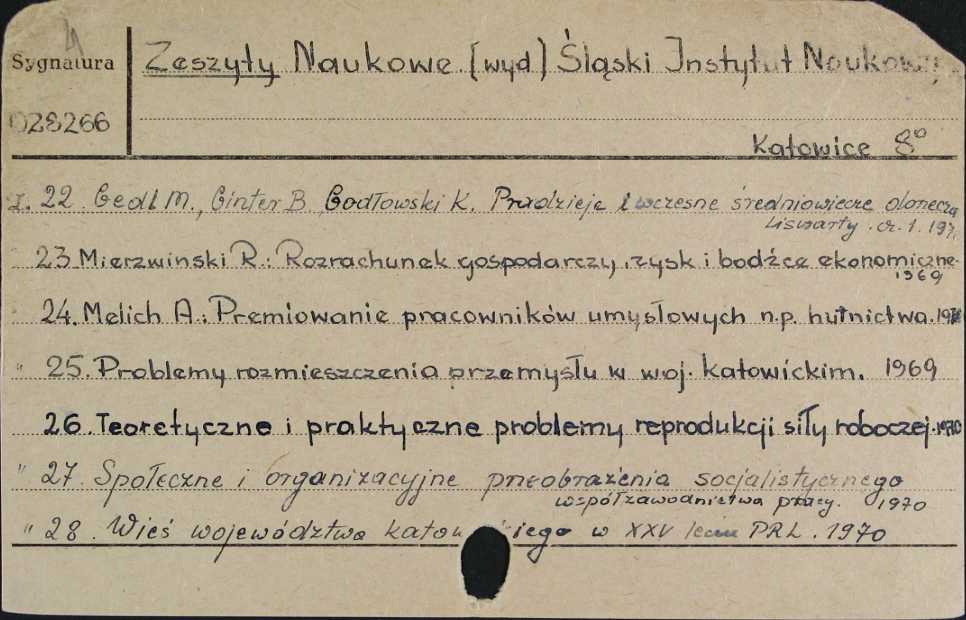 Sygnatura
Zeszyty Naukowe [wyd] Śląski Instytut Naukowy
028266
Katowice 8°
z. 22. Gedl M., Ginter B. Godłowski K. Pradzieje i wczesne średniowiecze dorzecza
Liswarty. cz. 1. 197
23. Mierzwinski R.: Rozrachunek gospodarczy, zysk i bodźce ekonomiczne.
1969
24. Melich A.: Premiowanie pracowników umysłowych n.p. hutnictwa.
" 25. Problemy rozmieszczenia przemysłu w woj. katowickim. 1969
26. Teoretyczne i praktyczne problemy reprodukcji siły roboczej. 1970
" 27. Społeczne i organizacyjne przeobrażenia socjalistycznego
współzawodnictwa pracy. 1970
" 28. Wieś województwa katow iego w XXV leciu PRL. 1970